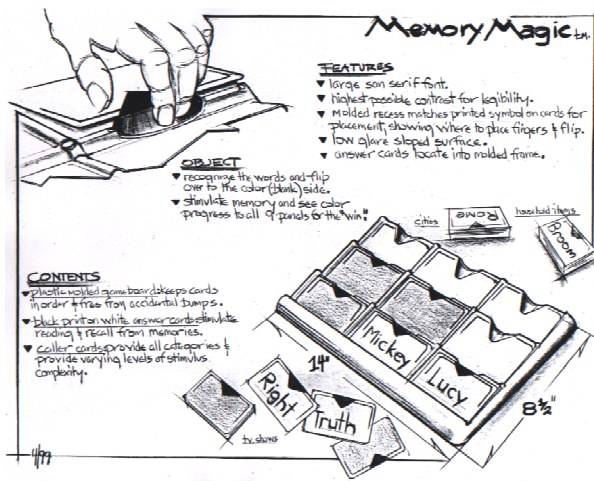 Memory Magic t.m.
FEATURES
▼ large san serif font.
▼ highest possible contrast for legibility.
▼ Molded recess matches printed symbol on cards for
placement, showing where to place fingers & flip.
▼ low glare sloped surface.
▼ answer cards locate into molded frame.
OBJECT
▼ recognize the words and flip
over to the color (blank) side.
▼ stimulate memory and see color
progress to all 9 panels for the "win".
cities
Rome
household items
Broom
CONTENTS
▼ plastic molded gameboard: keeps cards
in order & free from accidental bumps.
▼ black print on white answer cards stimulate
reading & recall from memories.
▼ caller cards provide all categories &
provide varying levels of stimulus
complexity.
Mickey
Lucy
14"
8 1/2"
Right
Truth
t.v. shows
11/99